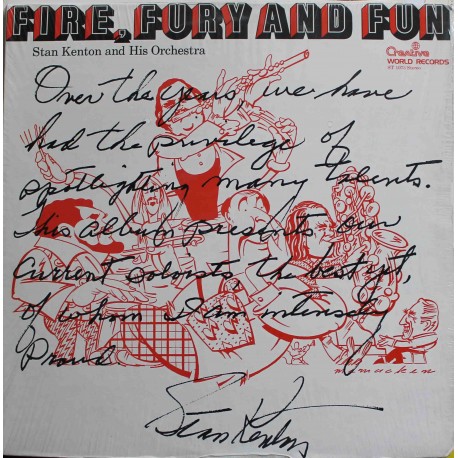 FIRE, FURY AND FUN
Stan Kenton and His Orchestra
Creative
WORLD RECORDS
ST 1073 Stereo
Over the years, we have
had the privilege of
spotlighting many talents.
This album presents our
current soloists, the best yet,
of whom I am intensely
Proud
Stan Kenton